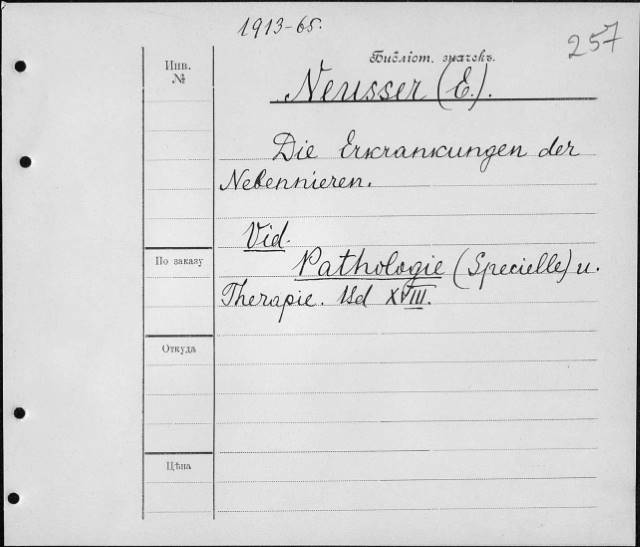 1913-65.
257
Инв. №
Библіот. значекъ.
Neusser (E.).
Die Erkrankungen der
Nebennieren.
Vid.
По заказу
Pathologie (Specielle) u.
Therapie. Bd XVIII.
Откуда
Цѣна